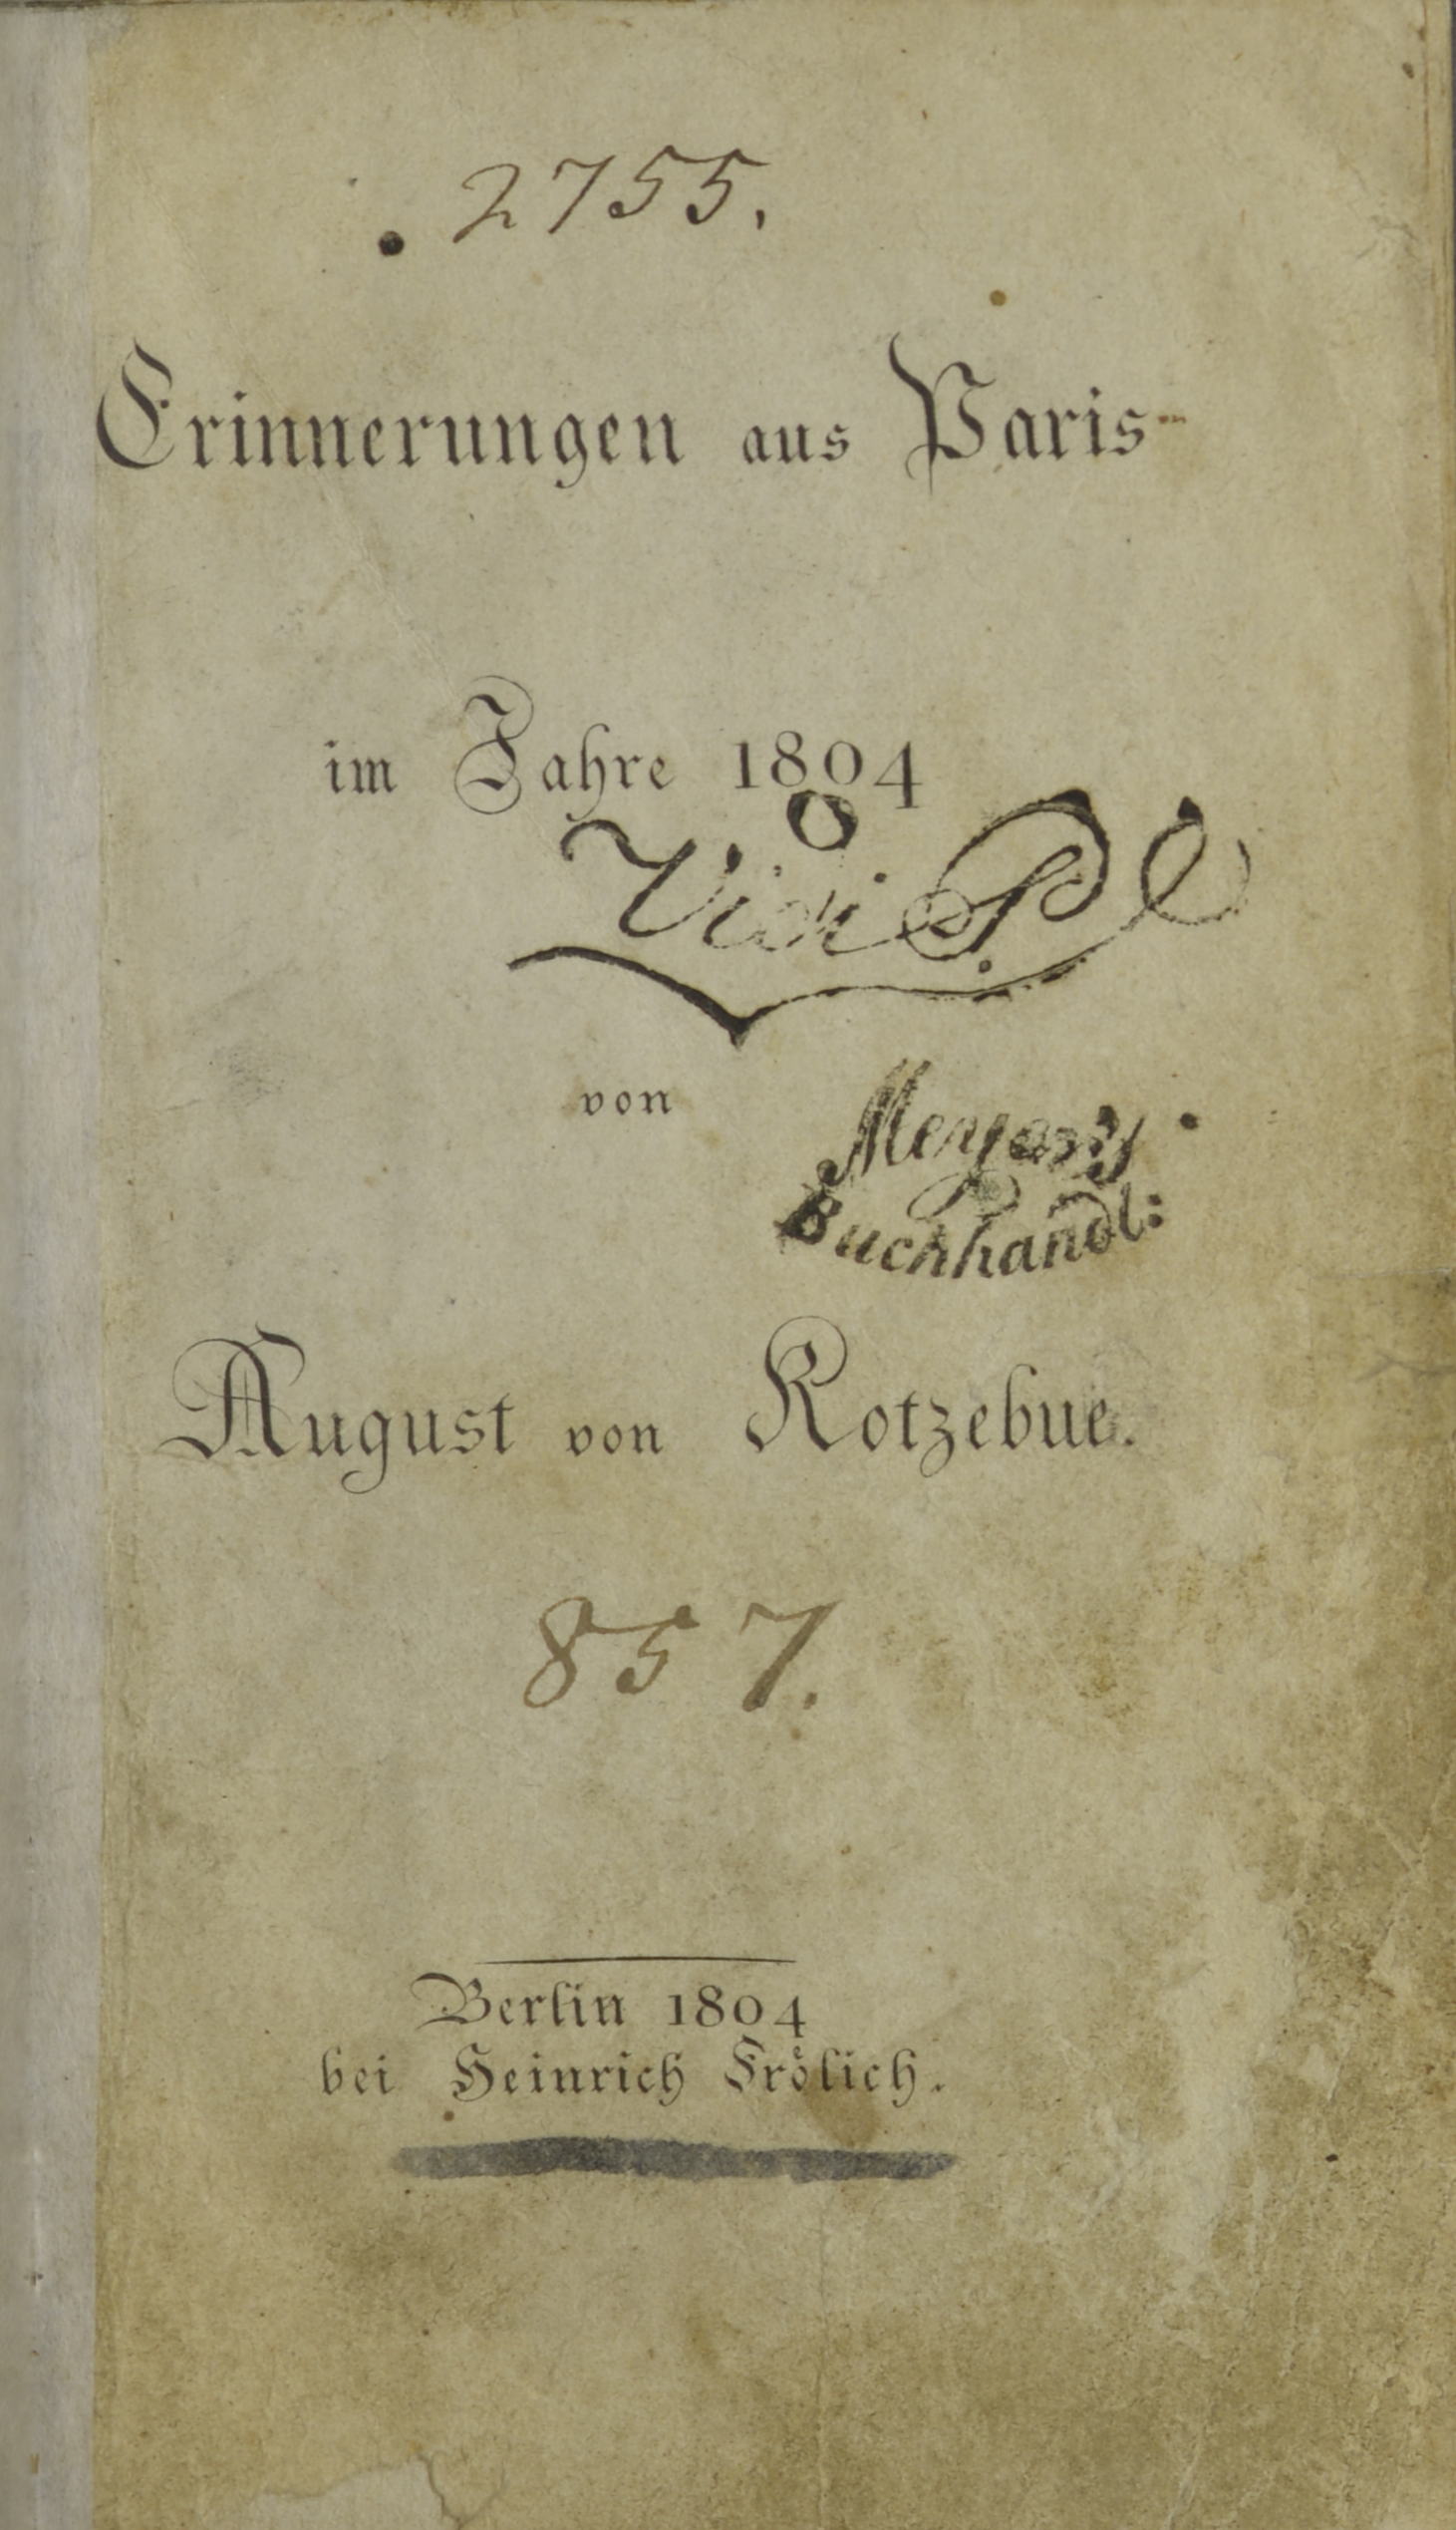 2755.
Erinnerungen aus Paris
im Jahre 1804
Vidi P
von
Buchhandl:
August von Kotzebue.
857.
Berlin 1804
bei Heinrich Frölich.